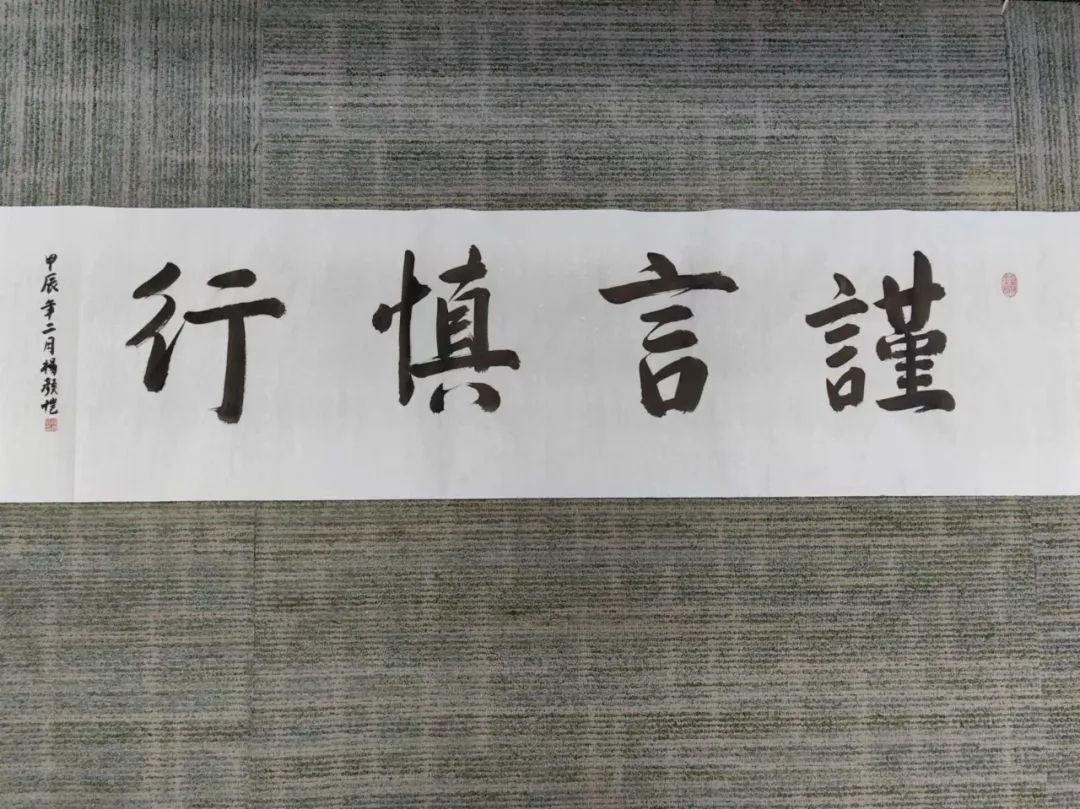 謹言慎行
甲辰年二月楊毅愷